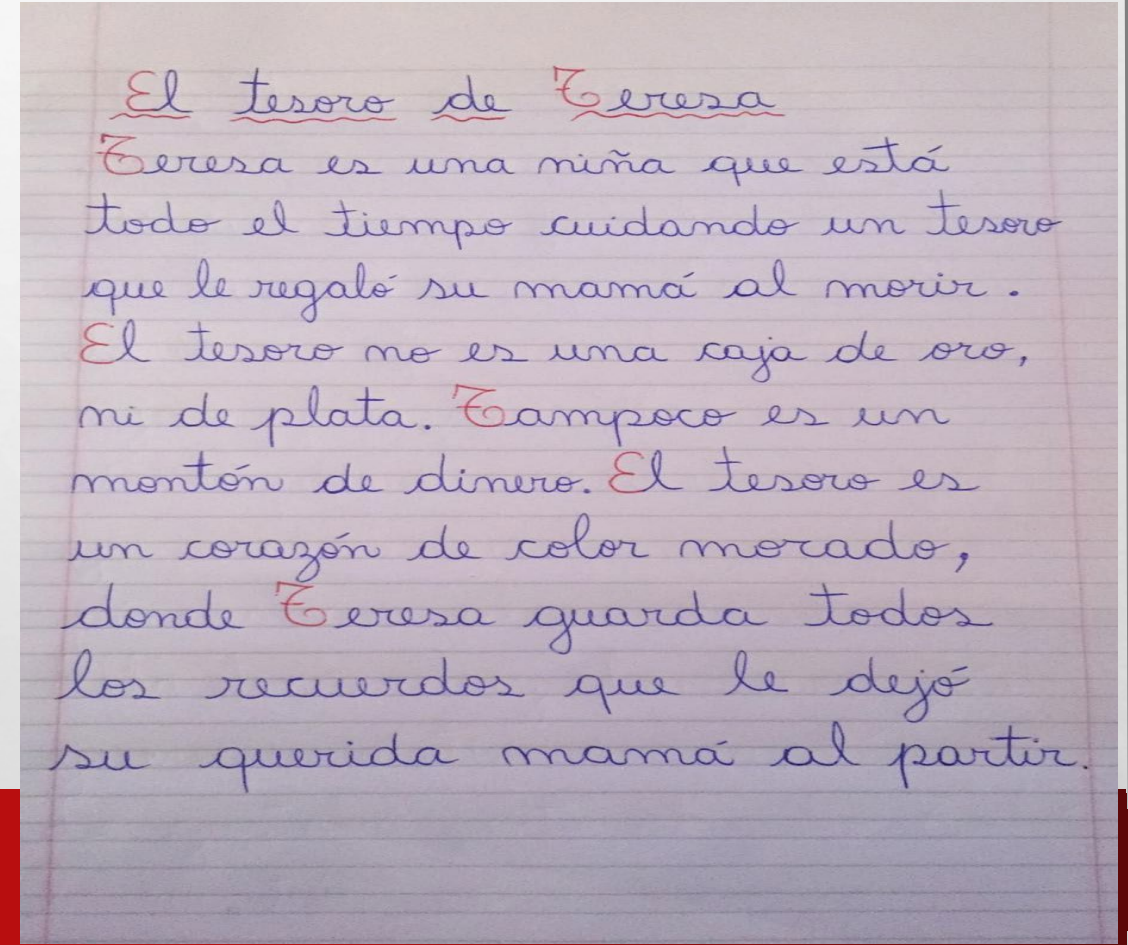 El tesoro de Teresa
Teresa es una niña que está
todo el tiempo cuidando un tesoro
que le regaló su mamá al morir.
El tesoro no es una caja de oro,
ni de plata. Tampoco es un
montón de dinero. El tesoro es
un corazón de color morado,
donde Teresa guarda todos
los recuerdos que le dejó
su querida mamá al partir.